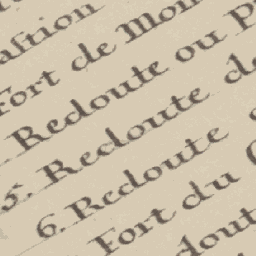 Bastion
Fort de Mon
Redoute ou P
5. Redoute de
6. Redoute
Fort du
doute